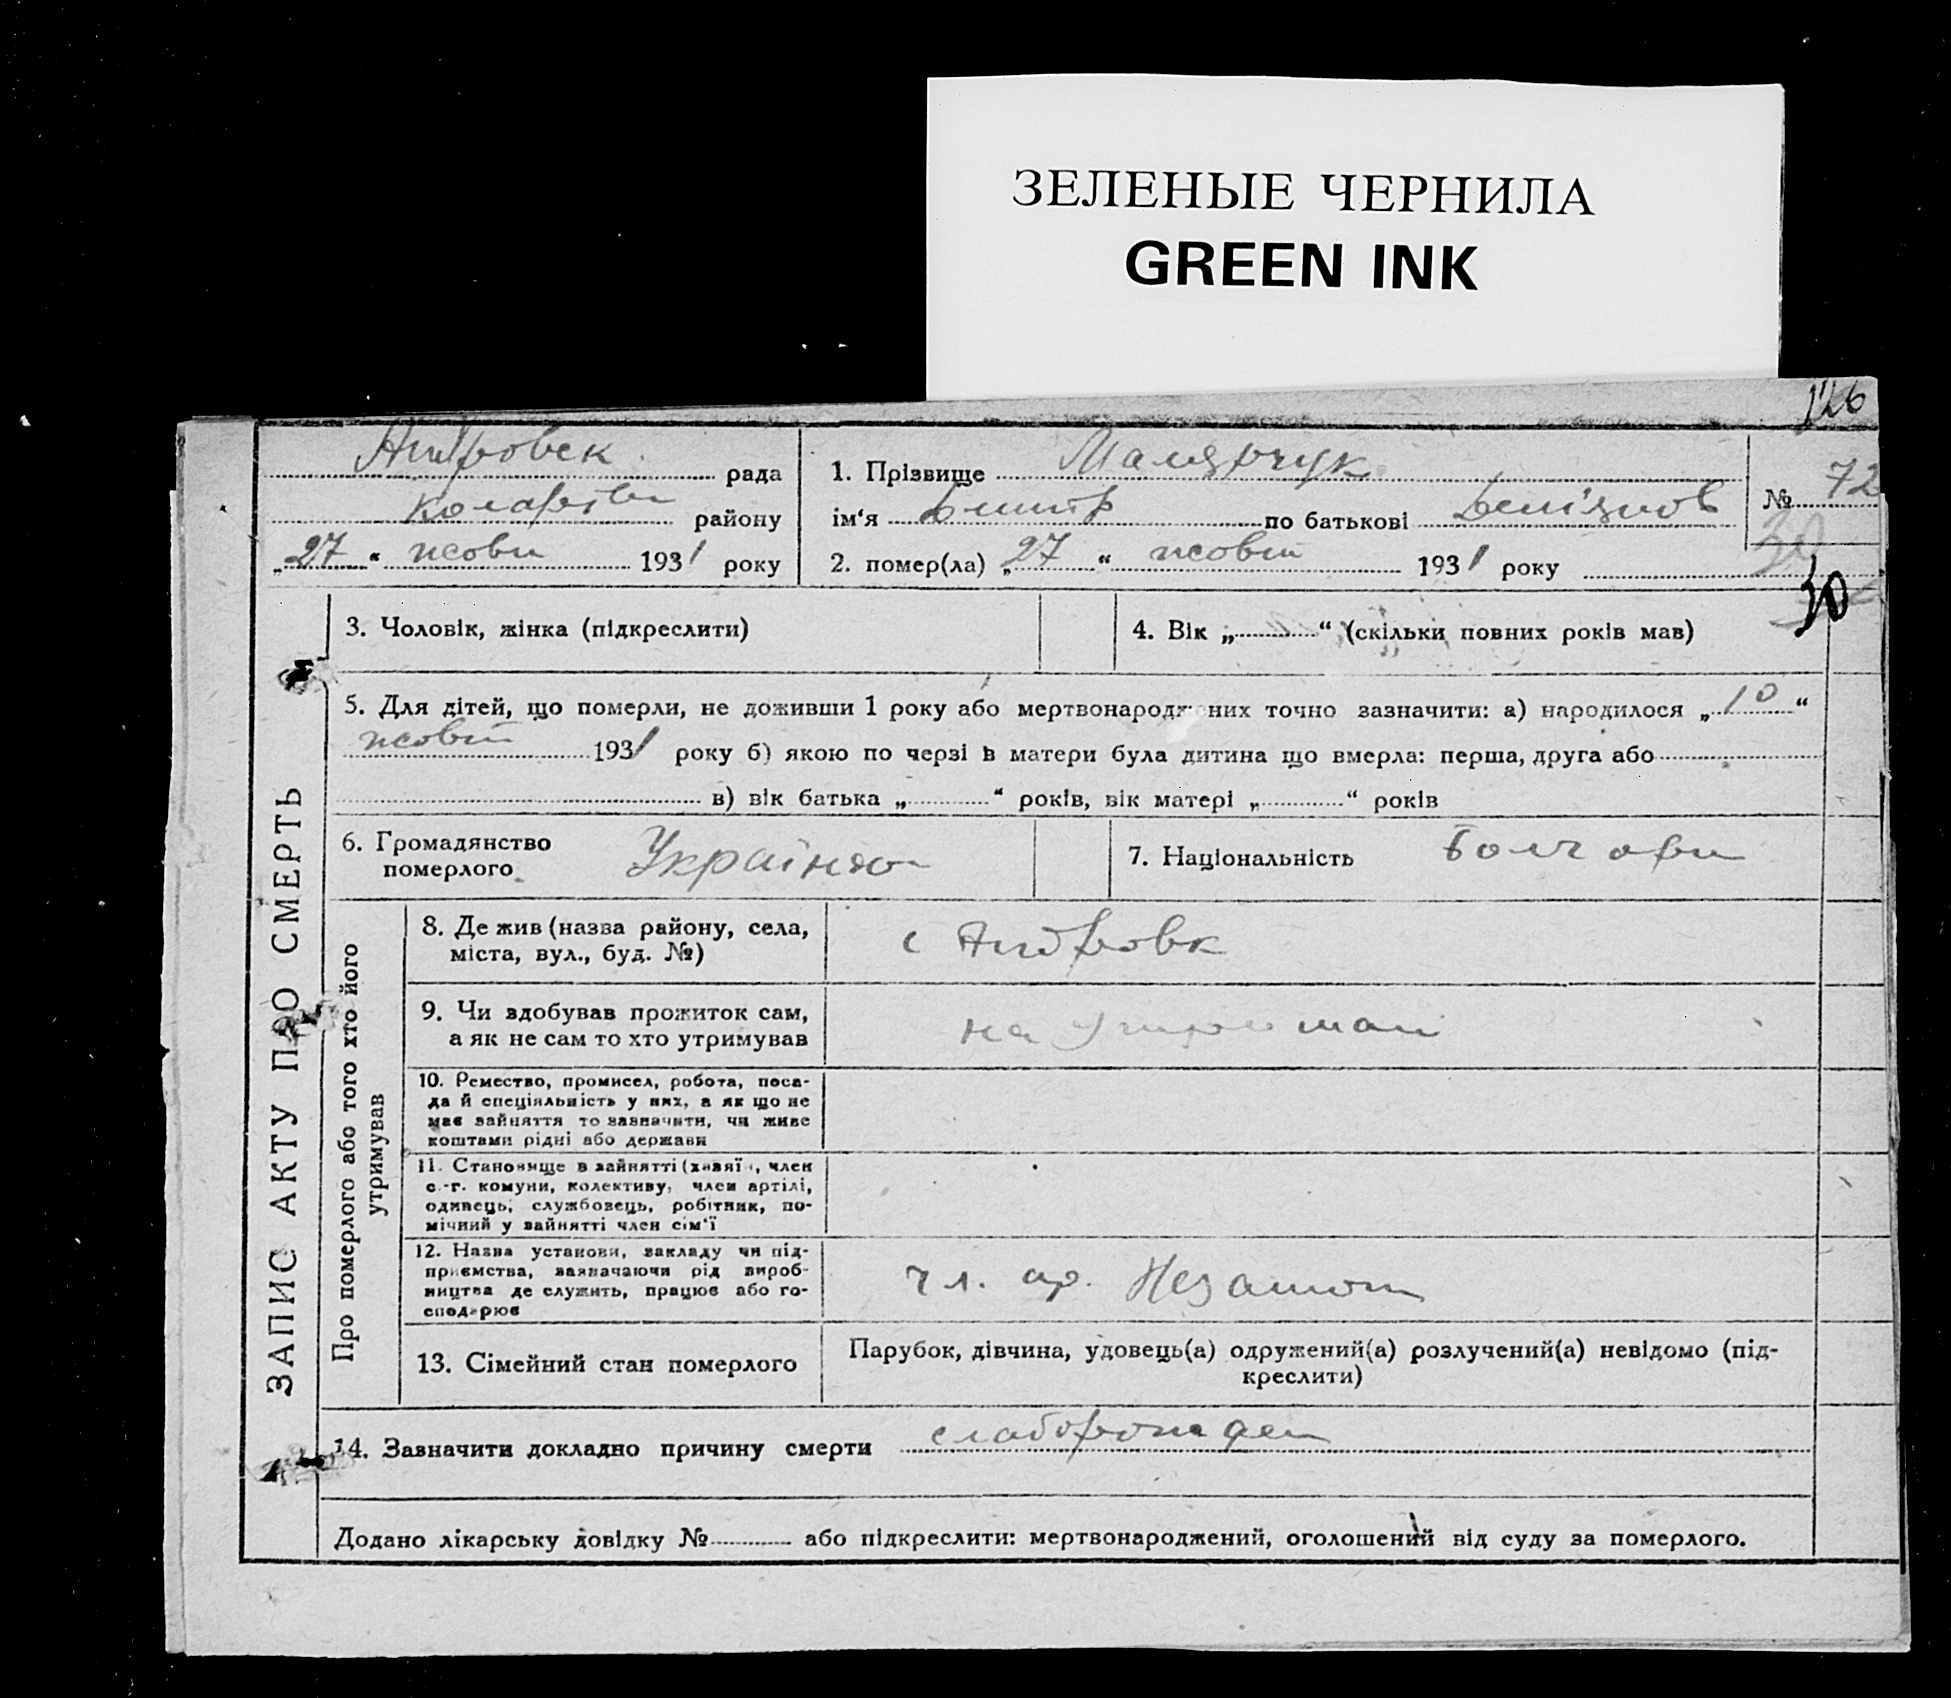 ЗЕЛЕНЫЕ ЧЕРНИЛА
GREEN INK
126
Андровск рада
району
„27" жовт 1931 року
1. Прізвище Малярчук
ім'я Дмитр по батькові
2. помер(ла) „27" жовт 1931 року
№ 72
30
30
ЗАПИС АКТУ ПРО СМЕРТЬ
3. Чоловік, жінка (підкреслити)
4. Вік „ " (скільки повних років мав)
5. Для дітей, що померли, не доживши 1 року або мертвонароджених точно зазначити: а) народилося „10"
жовт 1931 року б) якою по черзі в матери була дитина що вмерла: перша, друга або
в) вік батька „ " років, вік матері „ " років
6. Громадянство
померлого
7. Національність Болгари
Про померлого або того хто його
утримував
8. Де жив (назва району, села,
міста, вул., буд. №)
с Андровк
9. Чи здобував прожиток сам,
а як не сам то хто утримував
на утриман
10. Ремество, промисел, робота, поса-
да й спеціяльність у них, а як що не
має зайняття то зазначити, чи живе
коштами рідні або держави
11. Становище в зайнятті (хазяїн, член
с.-г. комуни, колективу, член артілі,
одинець, службовець, робітник, по-
мічний у зайнятті член сім'ї
12. Назва установи, закладу чи під-
приємства, зазначаючи рід вироб-
ництва де служить, працює або го-
сподарює
чл. ар. Незамож
13. Сімейний стан померлого
Парубок, дівчина, удовець(а) одружений(а) розлучений(а) невідомо (під-
креслити)
14. Зазначити докладно причину смерти слаборожден
Додано лікарську довідку № або підкреслити: мертвонароджений, оголошений від суду за померлого.